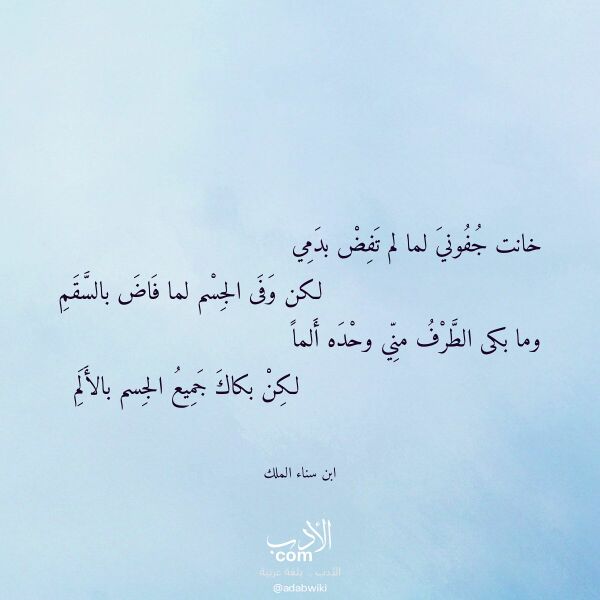 خانت جُفُونيَ لما لم تَفِضْ بدَمِي
لكن وَفَى الجِسْم لما فَاضَ بالسَّقَمِ
وما بكى الطَّرْفُ منِّي وحْدَه أَلماً
لكِنْ بكاكَ جَمِيعُ الجِسم بالأَلَمِ
ابن سناء الملك
الأدب
com
الأدب .. بلغة عربية
@adabwiki